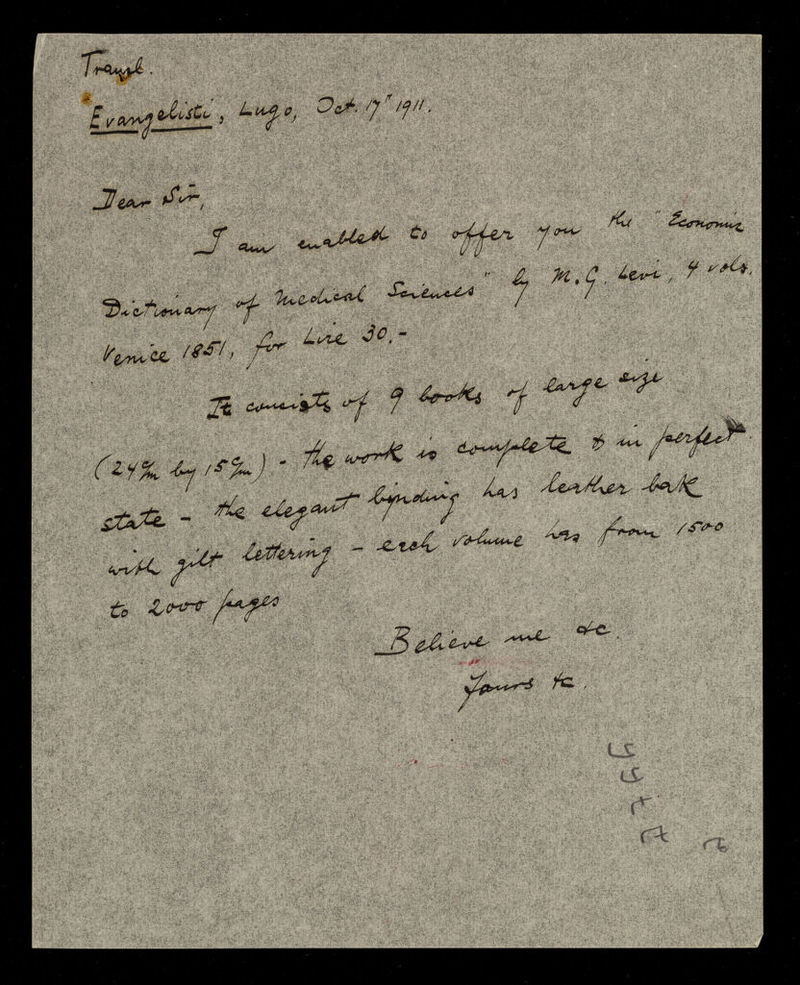 Transl.
Evangelisti, Lugo, Oct. 17" 1911.
Dear Sir,
I am enabled to offer you the "Economic
Dictionary of Medical Sciences" by M. G. Levi, 4 vols.
Venice 1851, for Lire 30.-
It consists of 9 books of large size
(24 c/m by 15 c/m) - the work is complete & in perfect
state - the elegant binding has leather bak
with gilt lettering - each volume has from 1500
to 2000 pages
Believe me &c.
Yours &c.